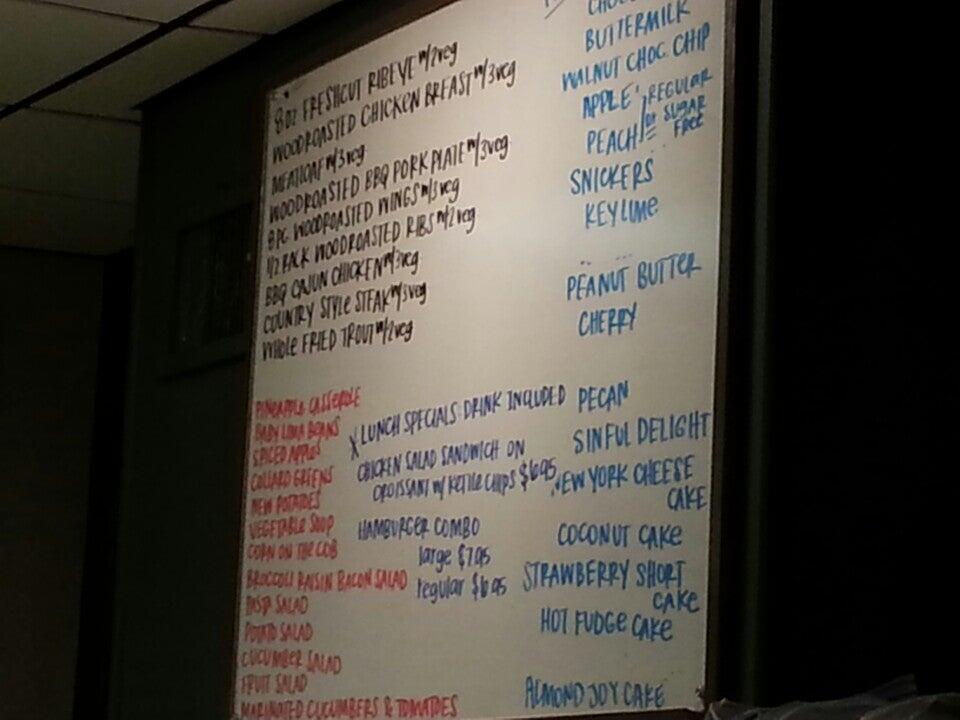 8 OZ FRESHCUT RIBEYE w/2veg
WOODROASTED CHICKEN BREAST w/3veg
MEATLOAF w/3veg
WOODROASTED BBQ PORK PLATE w/3veg
8 PC WOODROASTED WINGS w/3veg
1/2 RACK WOODROASTED RIBS w/2veg
BBQ CAJUN CHICKEN w/3veg
COUNTRY STYLE STEAK w/3veg
WHOLE FRIED TROUT w/2veg
PINEAPPLE CASSEROLE
BABY LIMA BEANS
SPICED APPLES
COLLARD GREENS
NEW POTATOES
VEGETABLE SOUP
CORN ON THE COB
BROCCOLI RAISIN BACON SALAD
PASTA SALAD
POTATO SALAD
CUCUMBER SALAD
FRUIT SALAD
MARINATED CUCUMBERS & TOMATOES
LUNCH SPECIALS: DRINK INCLUDED
CHICKEN SALAD SANDWICH ON
CROISSANT w/ KETTLE CHIPS $6.95
HAMBURGER COMBO
large $7.95
regular $6.95
BUTTERMILK
WALNUT CHOC. CHIP
APPLE
PEACH
REGULAR
or SUGAR
FREE
SNICKERS
KEY LIME
PEANUT BUTTER
CHERRY
PECAN
SINFUL DELIGHT
NEW YORK CHEESE
CAKE
COCONUT CAKE
STRAWBERRY SHORT
CAKE
HOT FUDGE CAKE
ALMOND JOY CAKE